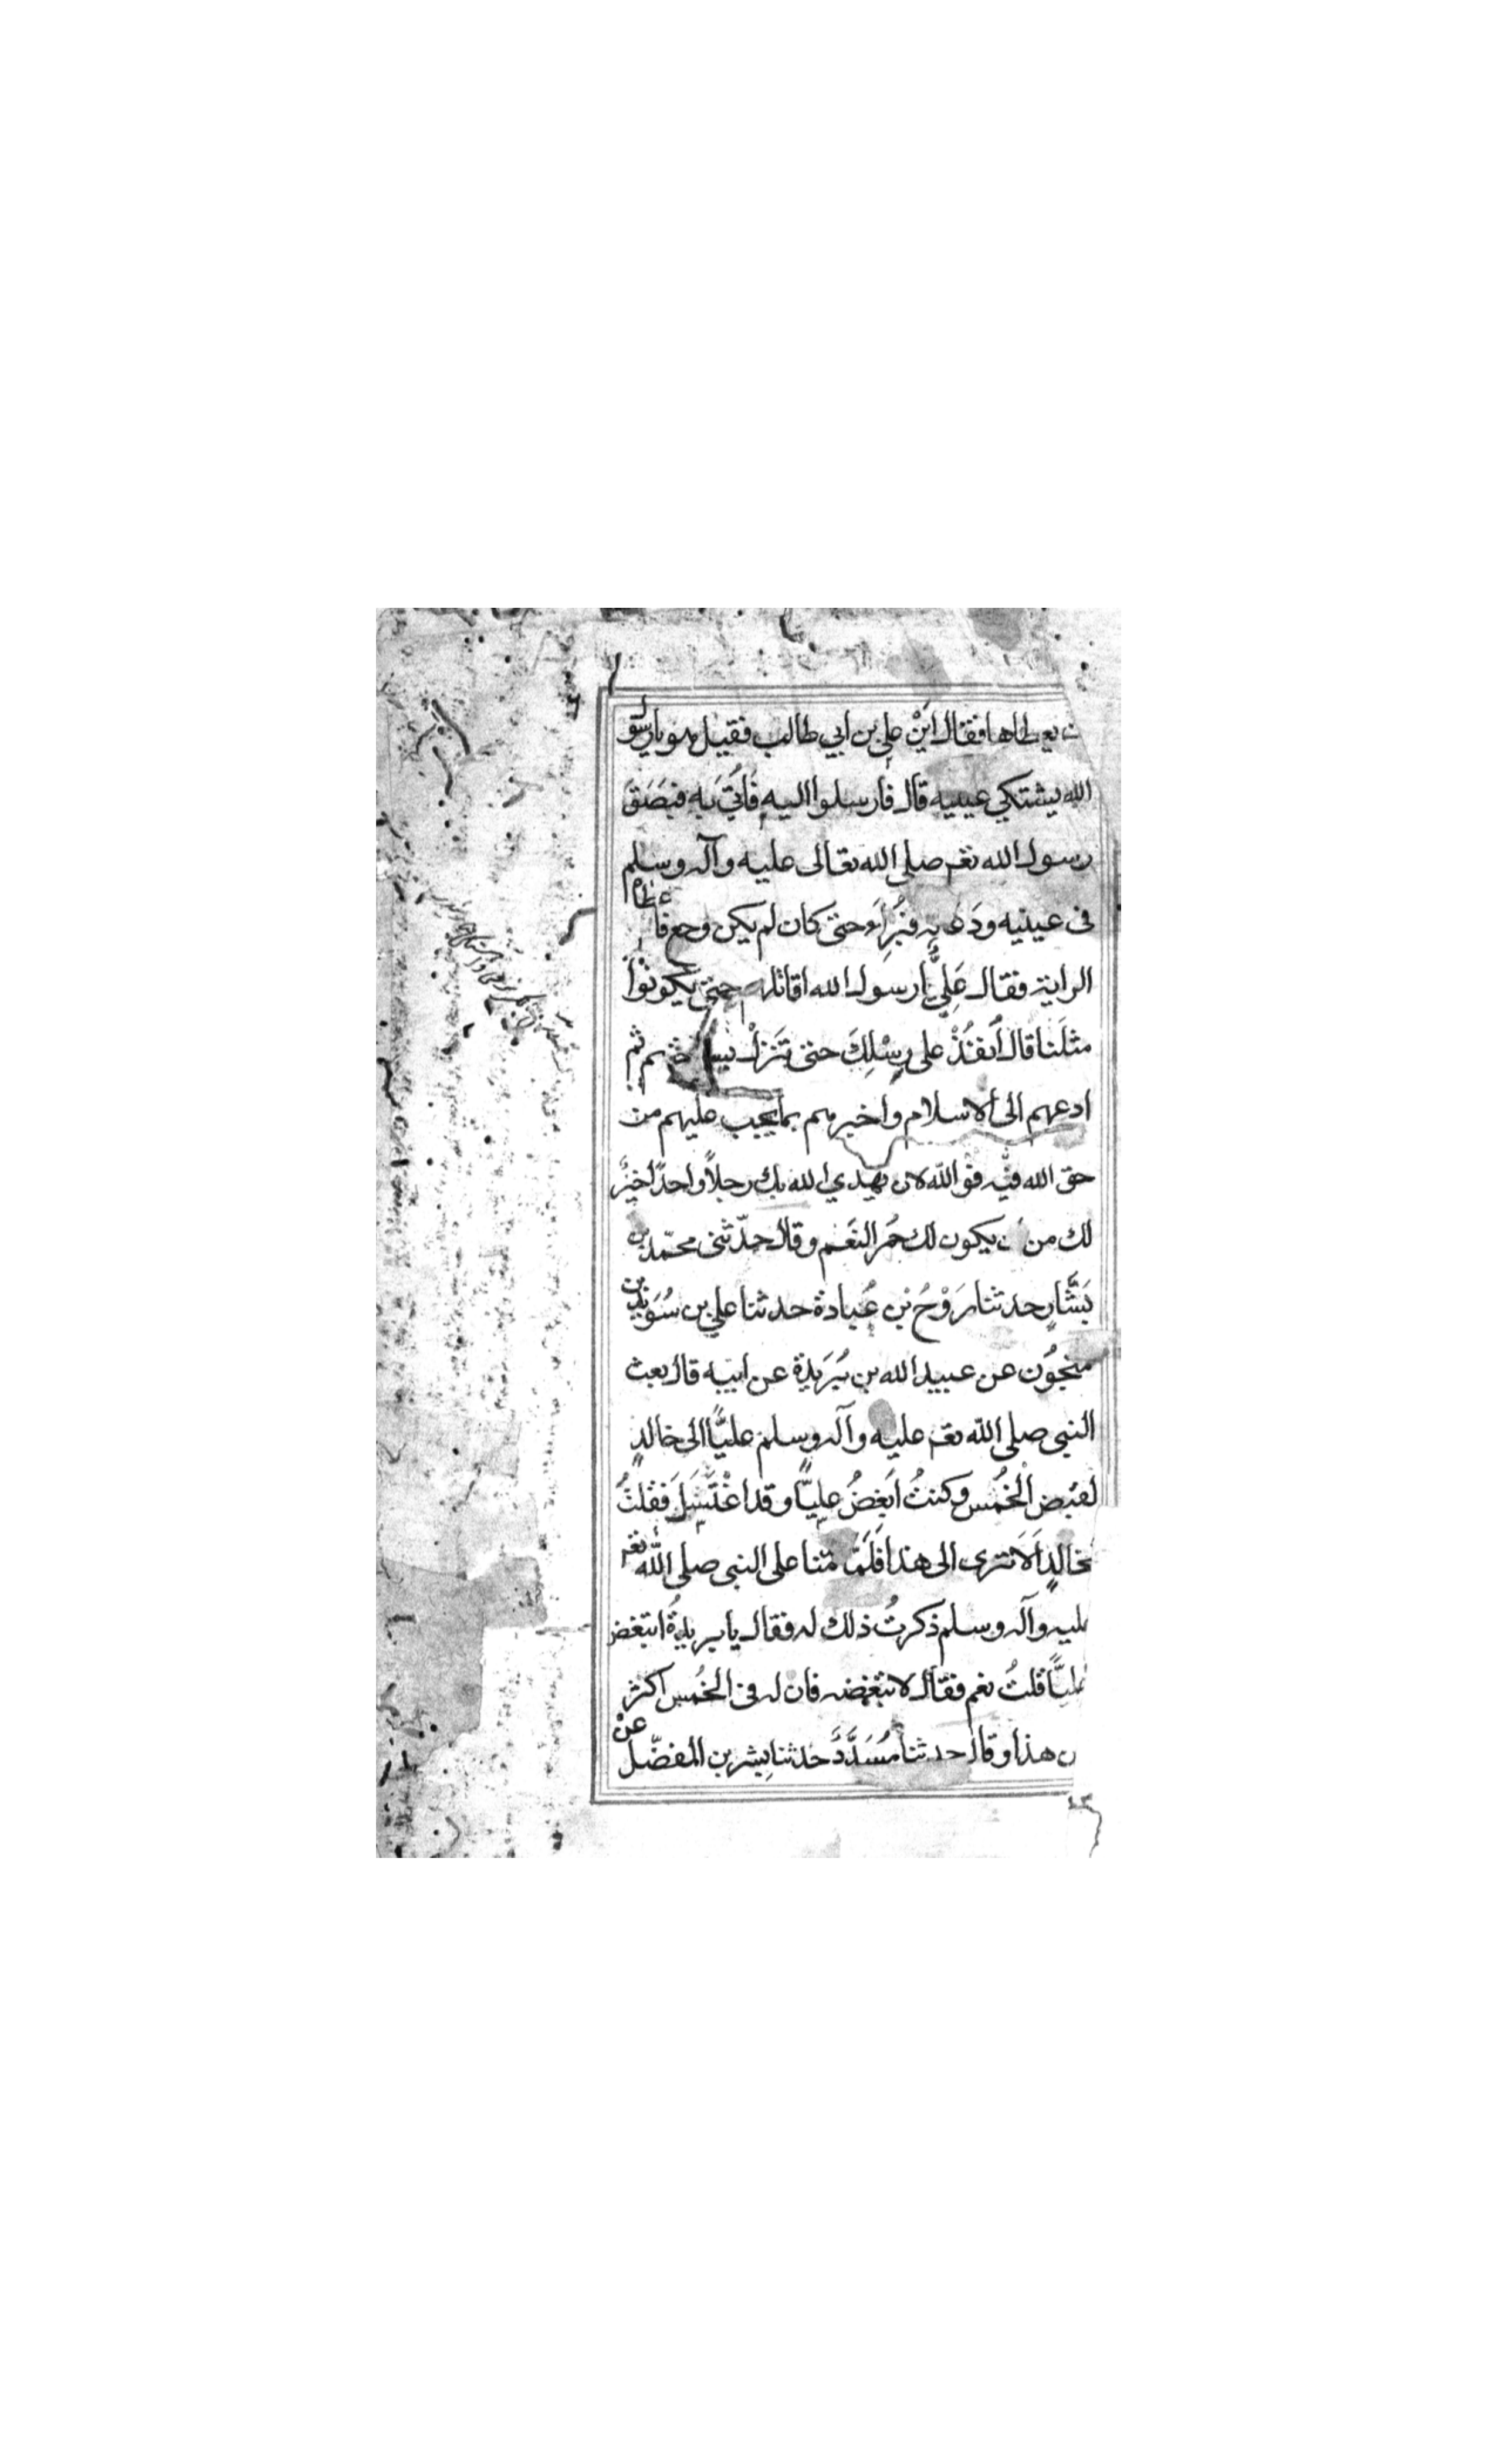 يعطاها فقال اَيْنَ علي بن ابي طالب فقيل هو يا رسول
الله يشتكي عينيه قال فارسلوا اليه فَاُتِيَ بَه فبَصَقَ
رسول الله تعـ صلى الله تعالى عليه وآله وسلم
فى عينيه ودَعَا له فَبُرِاَء حتى كان لم يكن وجع فأعطاه
الراية فقال عَلِيٌّ يا رسول الله اقاتلهم حتى يكونُوْا
مثلَنا قال اُنفُذْ على رِسْلِكَ حتى تَنْزِلَ ثم
ادعهم الى الاسلام واخبرهم بما يجب عليهم من
حق الله فيه فوالله لان يهدي الله بك رجلاً واحداً خيرٌ
لك من يكون لك حُمر النَعَم وقال حدّثنى محمّد بن
بَشَّار حدثنا رَوْحُ بْن عُبادة حدثنا علي بن سُوَيْد بن
منجُوْن عن عبيد الله بن بُرَيْدة عن ابيه قال بعث
النبى صلى الله تعـ عليه وآله وسلم عليّاً الى خالدٍ
لقبض الْخُمُس وكنتُ اَبغِضُ عليّاً وقد اغْتَسَلَ فقلتُ
لخالدٍ اَلَا ترى الى هذا فَلَمَّا قدمنا على النبى صلى الله تعـ
عليه وآله وسلم ذكرتُ ذلك له فقال يا بريدةُ اتبغض
عليّاً قلتُ نعم فقال لا تبغضه فان له فى الخُمُس اكثر
من هذا وقال حدثنا مُسَدَّدٌ حدثنا بِشر بن المفضّل عن